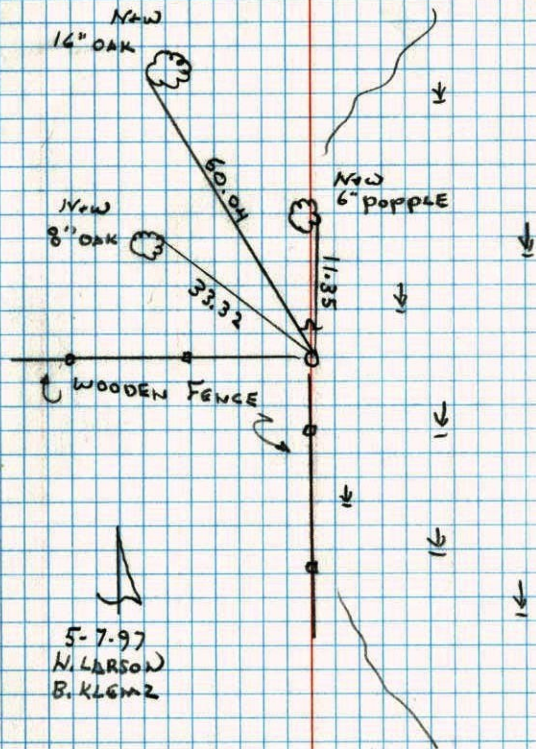 N+W
16" OAK
60.04
N+W
6" POPPLE
N+W
8" OAK
33.32
11.35
WOODEN FENCE
5-7-97
N. LARSON
B. KLEMZ